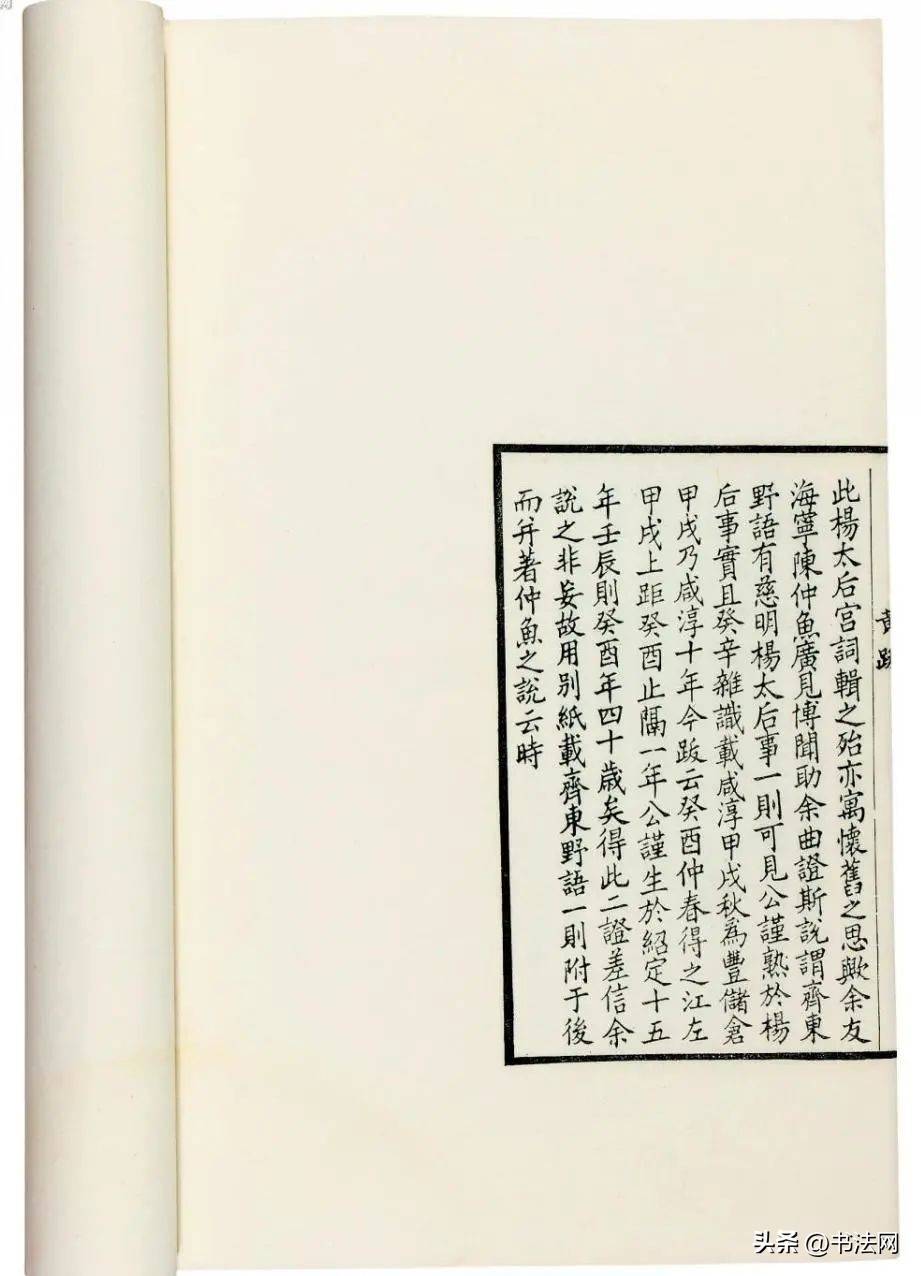 此楊太后宮詞輯之殆亦寓懷舊之思歟余友
海寧陳仲魚廣見博聞助余曲證斯說謂齊東
野語有慈明楊太后事一則可見公謹熟於楊
后事實且癸辛雜識載咸淳甲戌秋爲豐儲倉
甲戌乃咸淳十年今跋云癸酉仲春得之江左
甲戌上距癸酉止隔一年公謹生於紹定十五
年壬辰則癸酉年四十歲矣得此二證差信余
說之非妄故用別紙載齊東野語一則附于後
而并著仲魚之說云時
黃跋
头条 @书法网